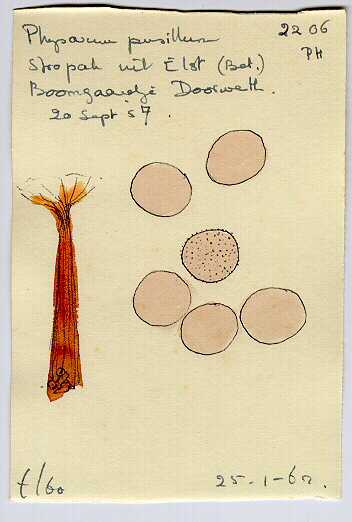 Physarum pusillum
2206
PH
Stropak uit Elst (Bet.)
Boomgaardje Doorwerth.
20 Sept 57.
t/60
25-1-60.